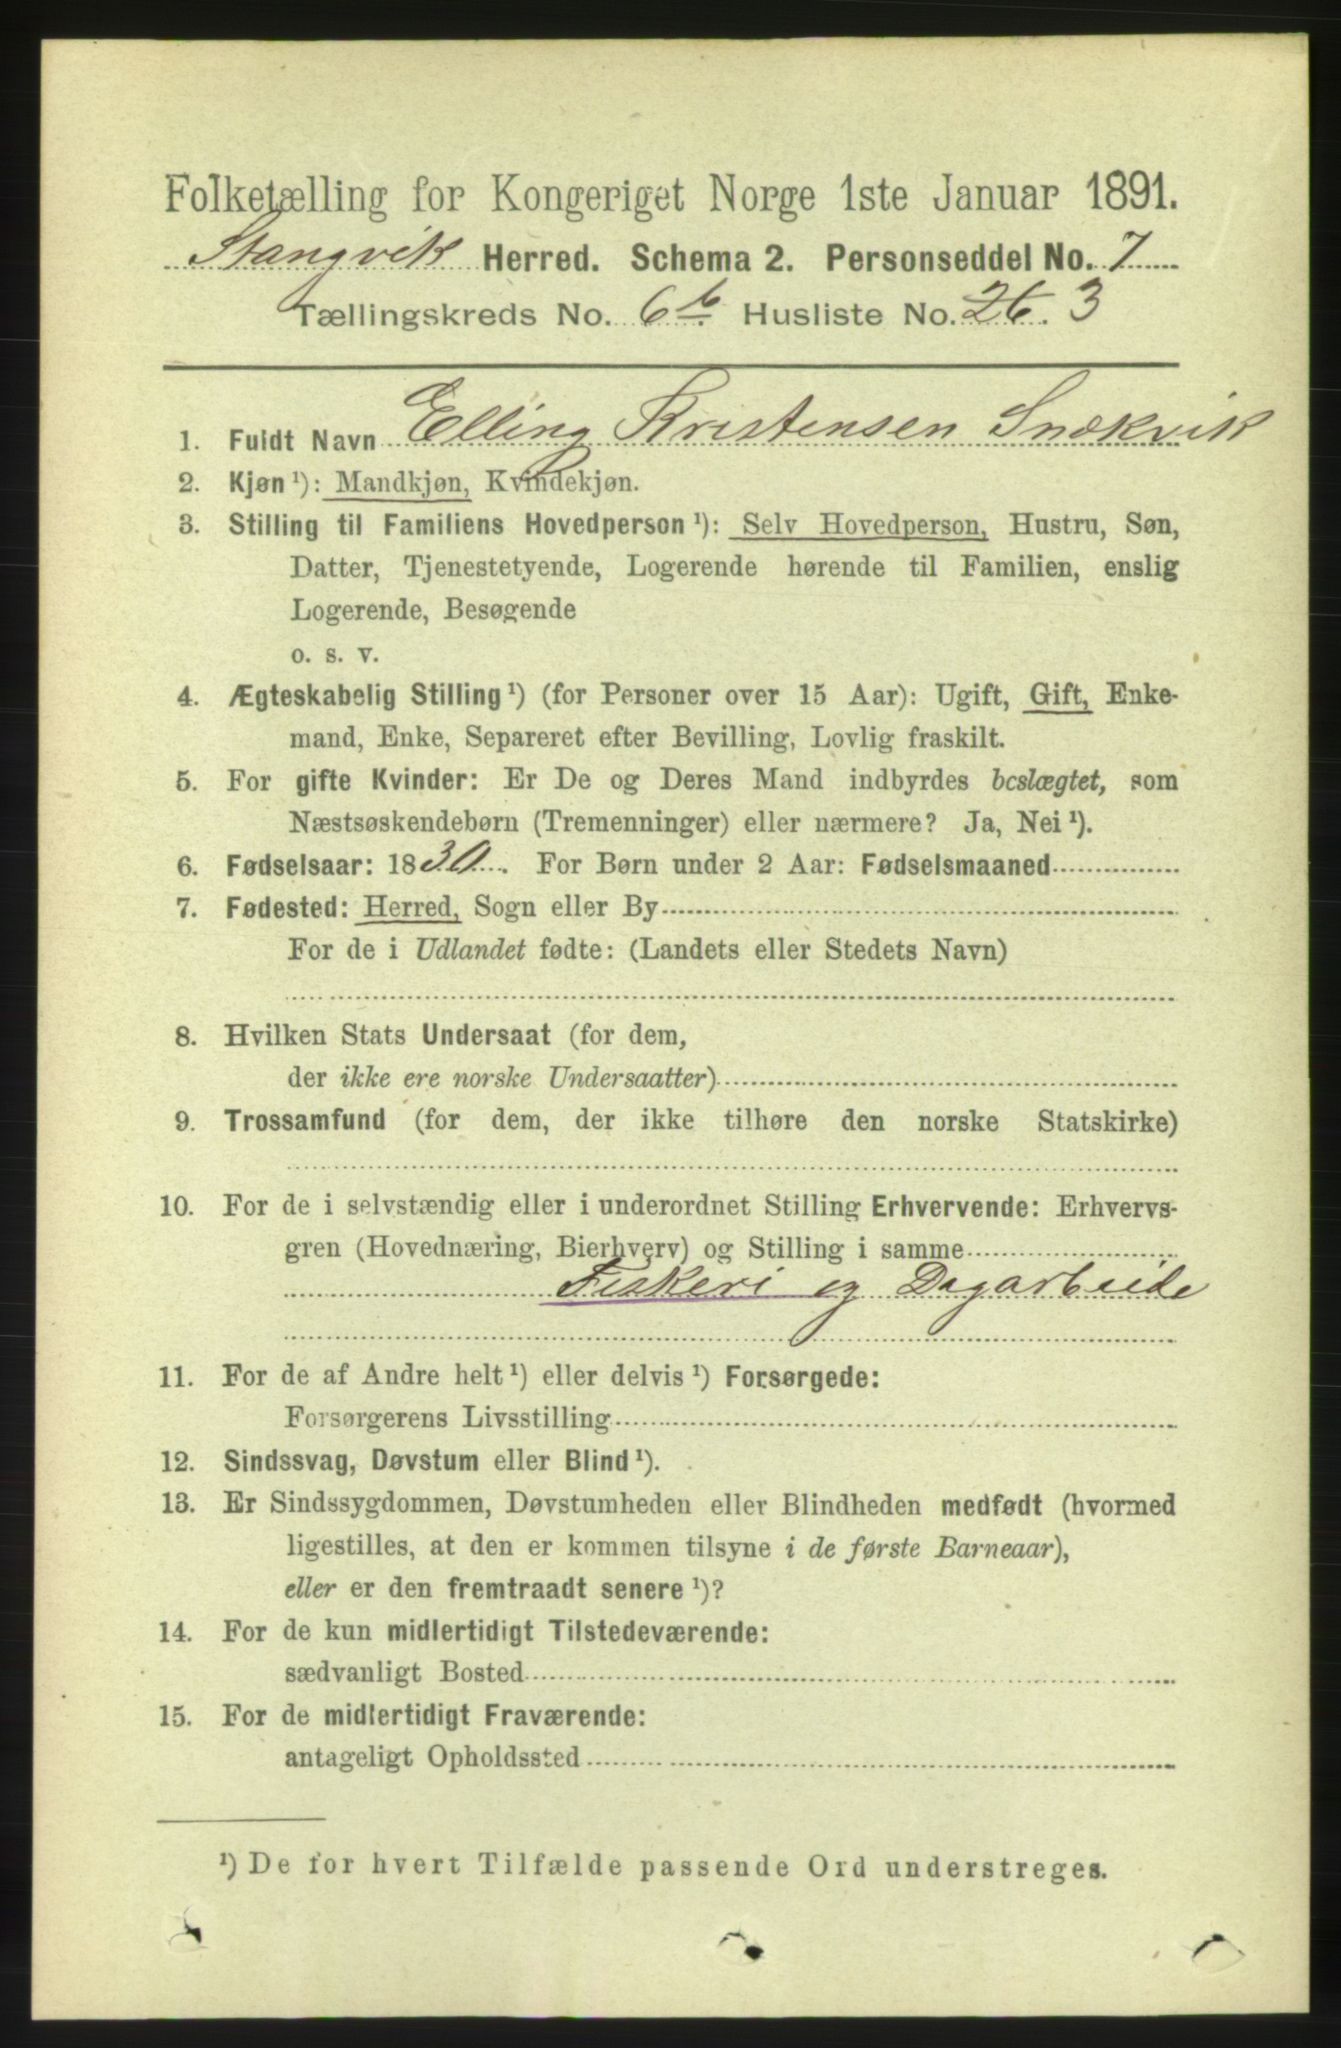 Folketælling for Kongeriget Norge 1ste Januar 1891.
Stangvik Herred. Schema 2. Personseddel No. 7
Tællingskreds No. 6 b. Husliste No. 26. 3
1. Fuldt Navn Elling Kristensen Snekvik
2. Kjøn¹): Mandkjøn, Kvindekjøn.
3. Stilling til Familiens Hovedperson¹): Selv Hovedperson, Hustru, Søn,
Datter, Tjenestetyende, Logerende hørende til Familien, enslig
Logerende, Besøgende
o. s. v.
4. Ægteskabelig Stilling¹) (for Personer over 15 Aar): Ugift, Gift, Enke-
mand, Enke, Separeret efter Bevilling, Lovlig fraskilt.
5. For gifte Kvinder: Er De og Deres Mand indbyrdes beslægtet, som
Næstsøskendebørn (Tremenninger) eller nærmere? Ja, Nei¹).
6. Fødselsaar: 1830. For Børn under 2 Aar: Fødselsmaaned
7. Fødested: Herred, Sogn eller By
For de i Udlandet fødte: (Landets eller Stedets Navn)
8. Hvilken Stats Undersaat (for dem,
der ikke ere norske Undersaatter)
9. Trossamfund (for dem, der ikke tilhøre den norske Statskirke)
10. For de i selvstændig eller i underordnet Stilling Erhvervende: Erhvervs-
gren (Hovednæring, Bierhverv) og Stilling i samme
Fiskeri og Dagarbeide
11. For de af Andre helt¹) eller delvis¹) Forsørgede:
Forsørgerens Livsstilling
12. Sindssvag, Døvstum eller Blind¹).
13. Er Sindssygdommen, Døvstumheden eller Blindheden medfødt (hvormed
ligestilles, at den er kommen tilsyne i de første Barneaar),
eller er den fremtraadt senere¹)?
14. For de kun midlertidigt Tilstedeværende:
sædvanligt Bosted
15. For de midlertidigt Fraværende:
antageligt Opholdssted
¹) De for hvert Tilfælde passende Ord understreges.